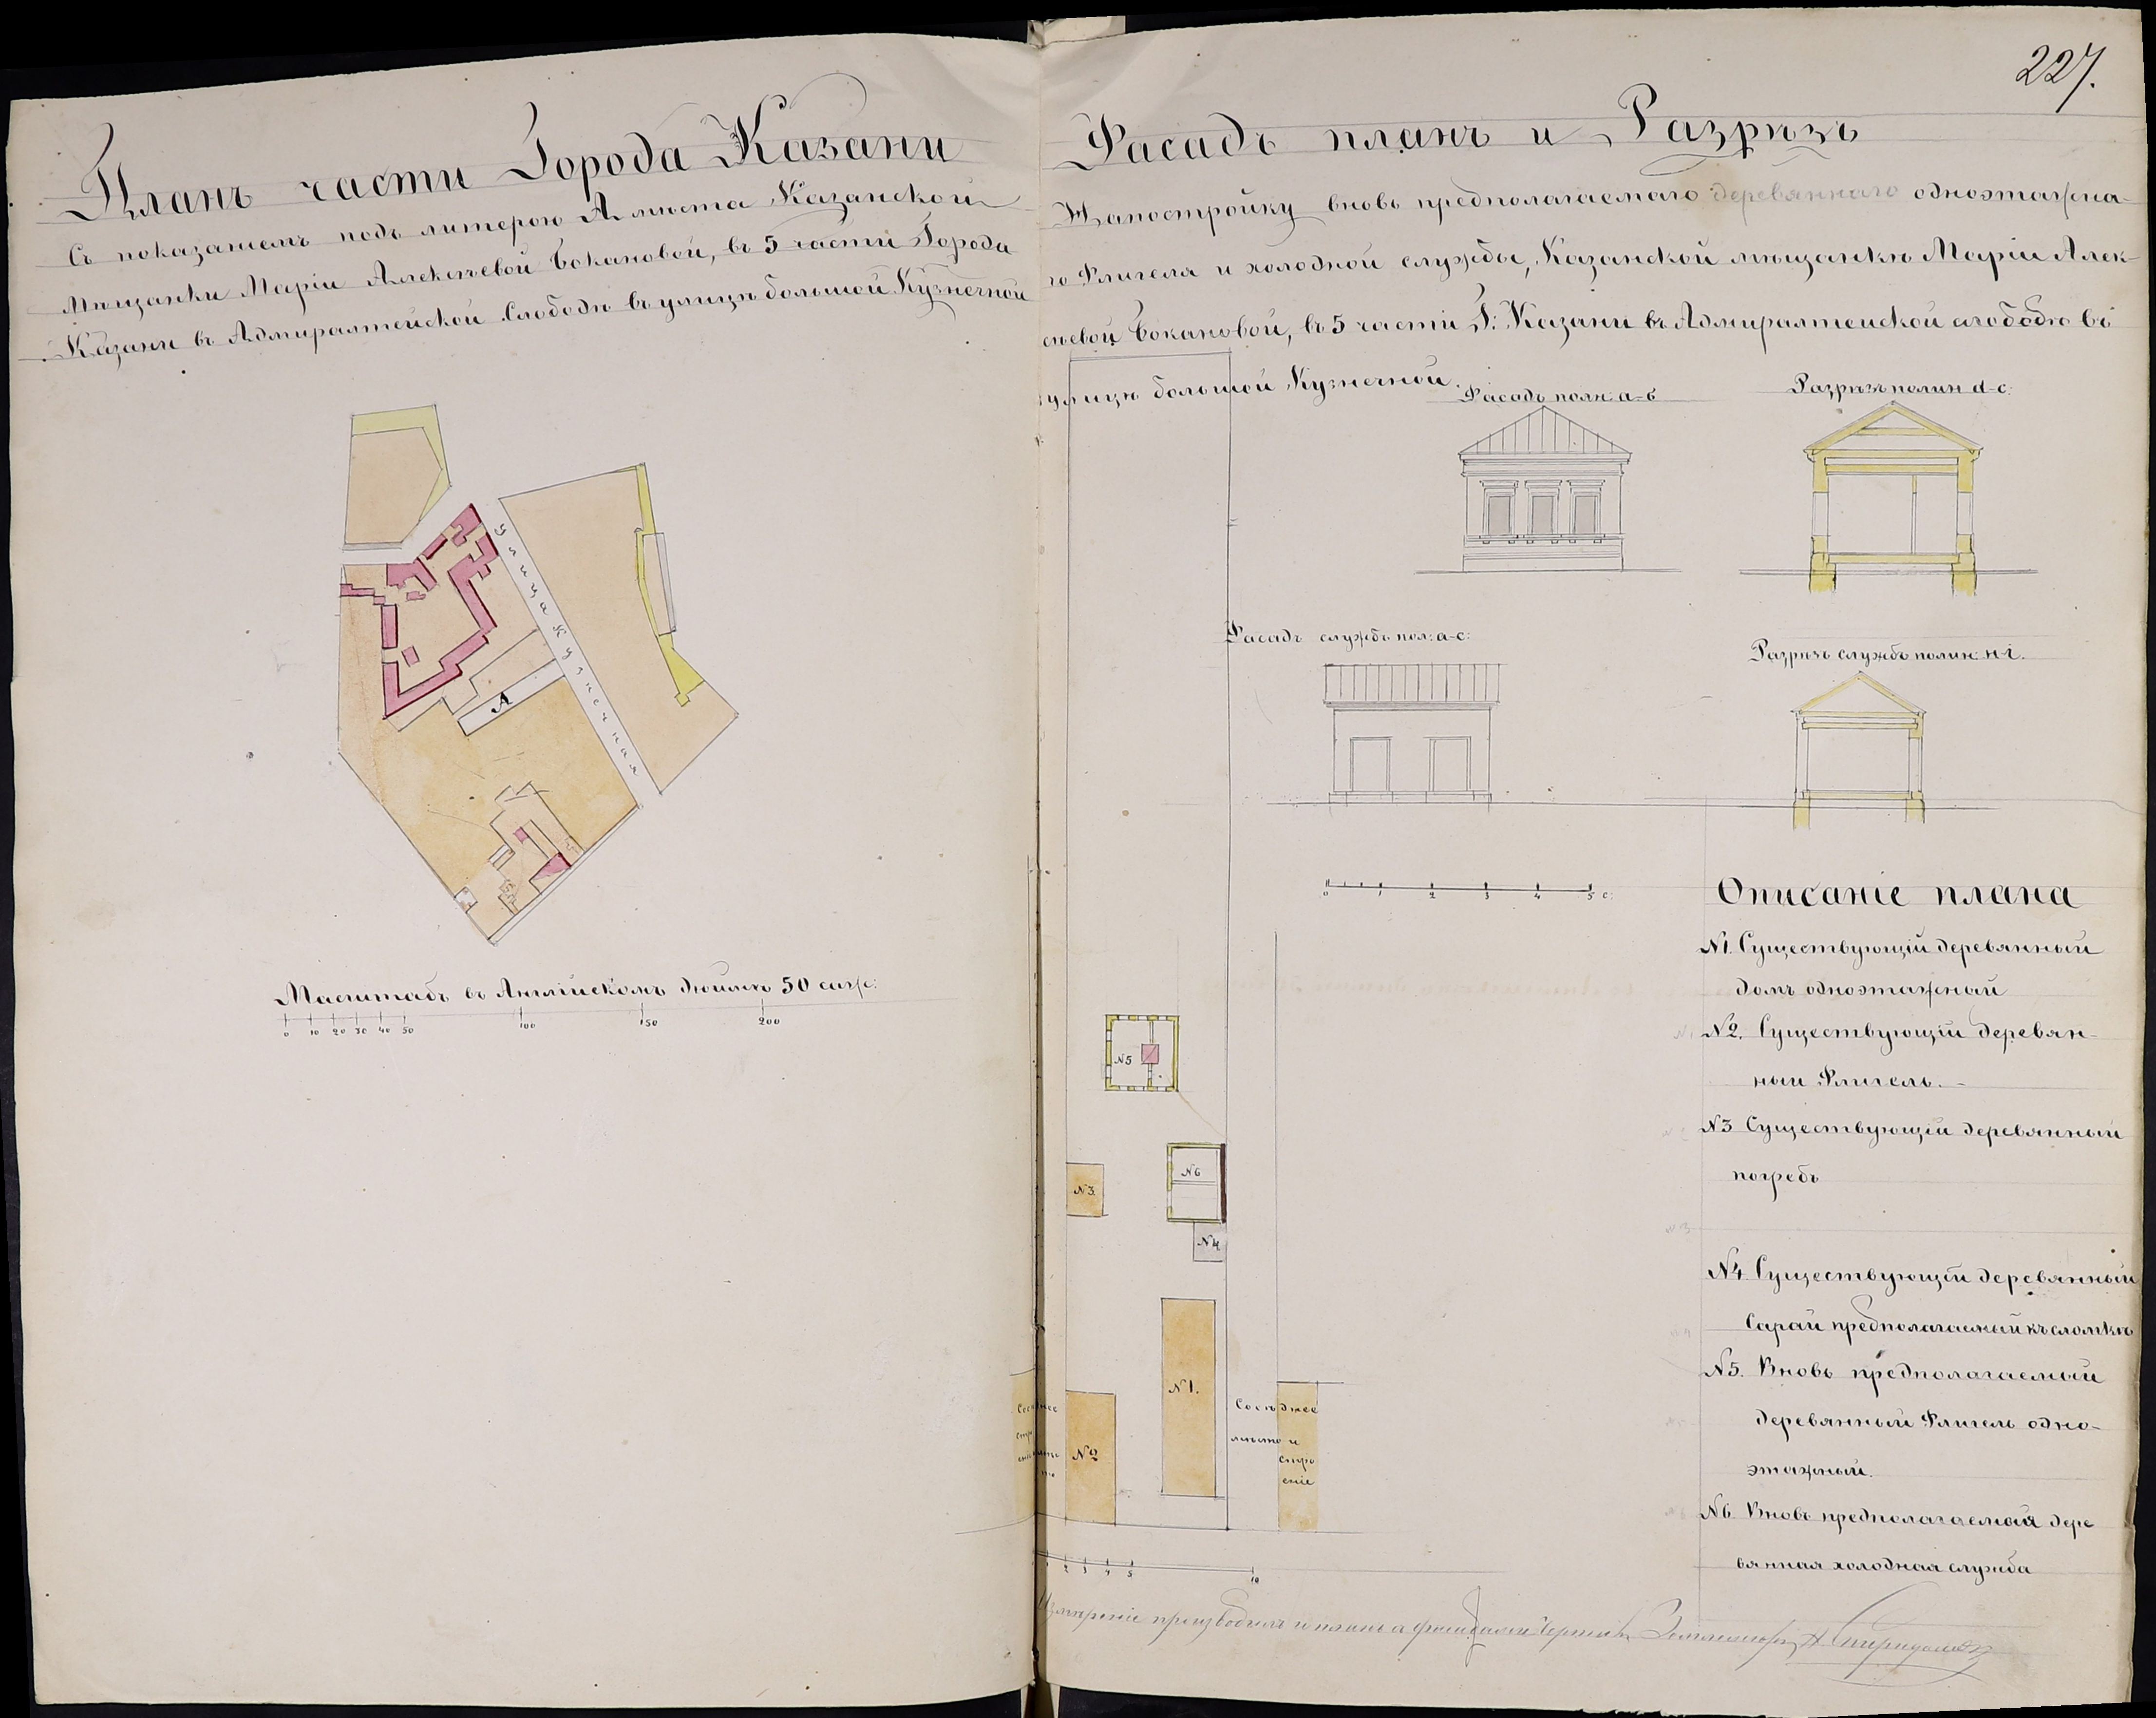 227.
Планъ части Города Казани
Съ показаніемъ подъ литерою А мѣста Казанской
Мѣщанки Маріи Алексѣевой Бокановой, въ 5 части Города
Казани въ Адмиралтейской Слободѣ въ улицѣ большой Кузнечной
улица Кузнечная
А
Масштабъ въ Англійскомъ дюймѣ 50 саж:
0 10 20 30 40 50 100 150 200
Фасадъ планъ и Разрѣзъ
На постройку вновь предполагаемаго деревяннаго одноэтажна-
го Флигеля и холодной службы, Казанской мѣщанки Маріи Алек-
сѣевой Бокановой, въ 5 части Г: Казани въ Адмиралтейской слободѣ въ
улицѣ большой Кузнечной.
Фасадъ по лн: а-б
Разрѣзъ по лин d-c:
Фасадъ службъ по л: а-с:
Разрѣзъ службъ по лин: н-i.
0 1 2 3 4 5 с:
Описаніе плана
N1. Существующій деревянный
домъ одноэтажный
N2. Существующій деревян-
ный Флигель.
N3 Существующій деревянный
погребъ
N4. Существующій деревянный
Сарай предполагаемый къ сломкѣ
N5. Вновь предполагаемый
деревянный Флигель одно-
этажный.
N6 Вновь предполагаемая дере
вянная холодная служба
N5
N6
N3.
N4
N1.
N2
Сосѣднее
мѣсто и
стро
еніе
2 3 4 5 10
Измѣреніе производилъ и планъ а фасадами Чертилъ Землемѣръ